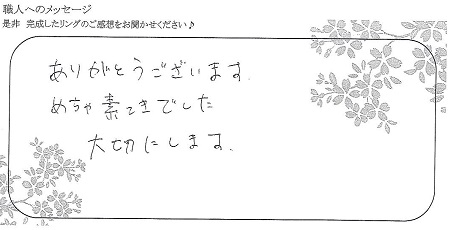 職人へのメッセージ
是非 完成したリングのご感想をお聞かせください♪
ありがとうございます.
めちゃ素てきでした
大切にします.